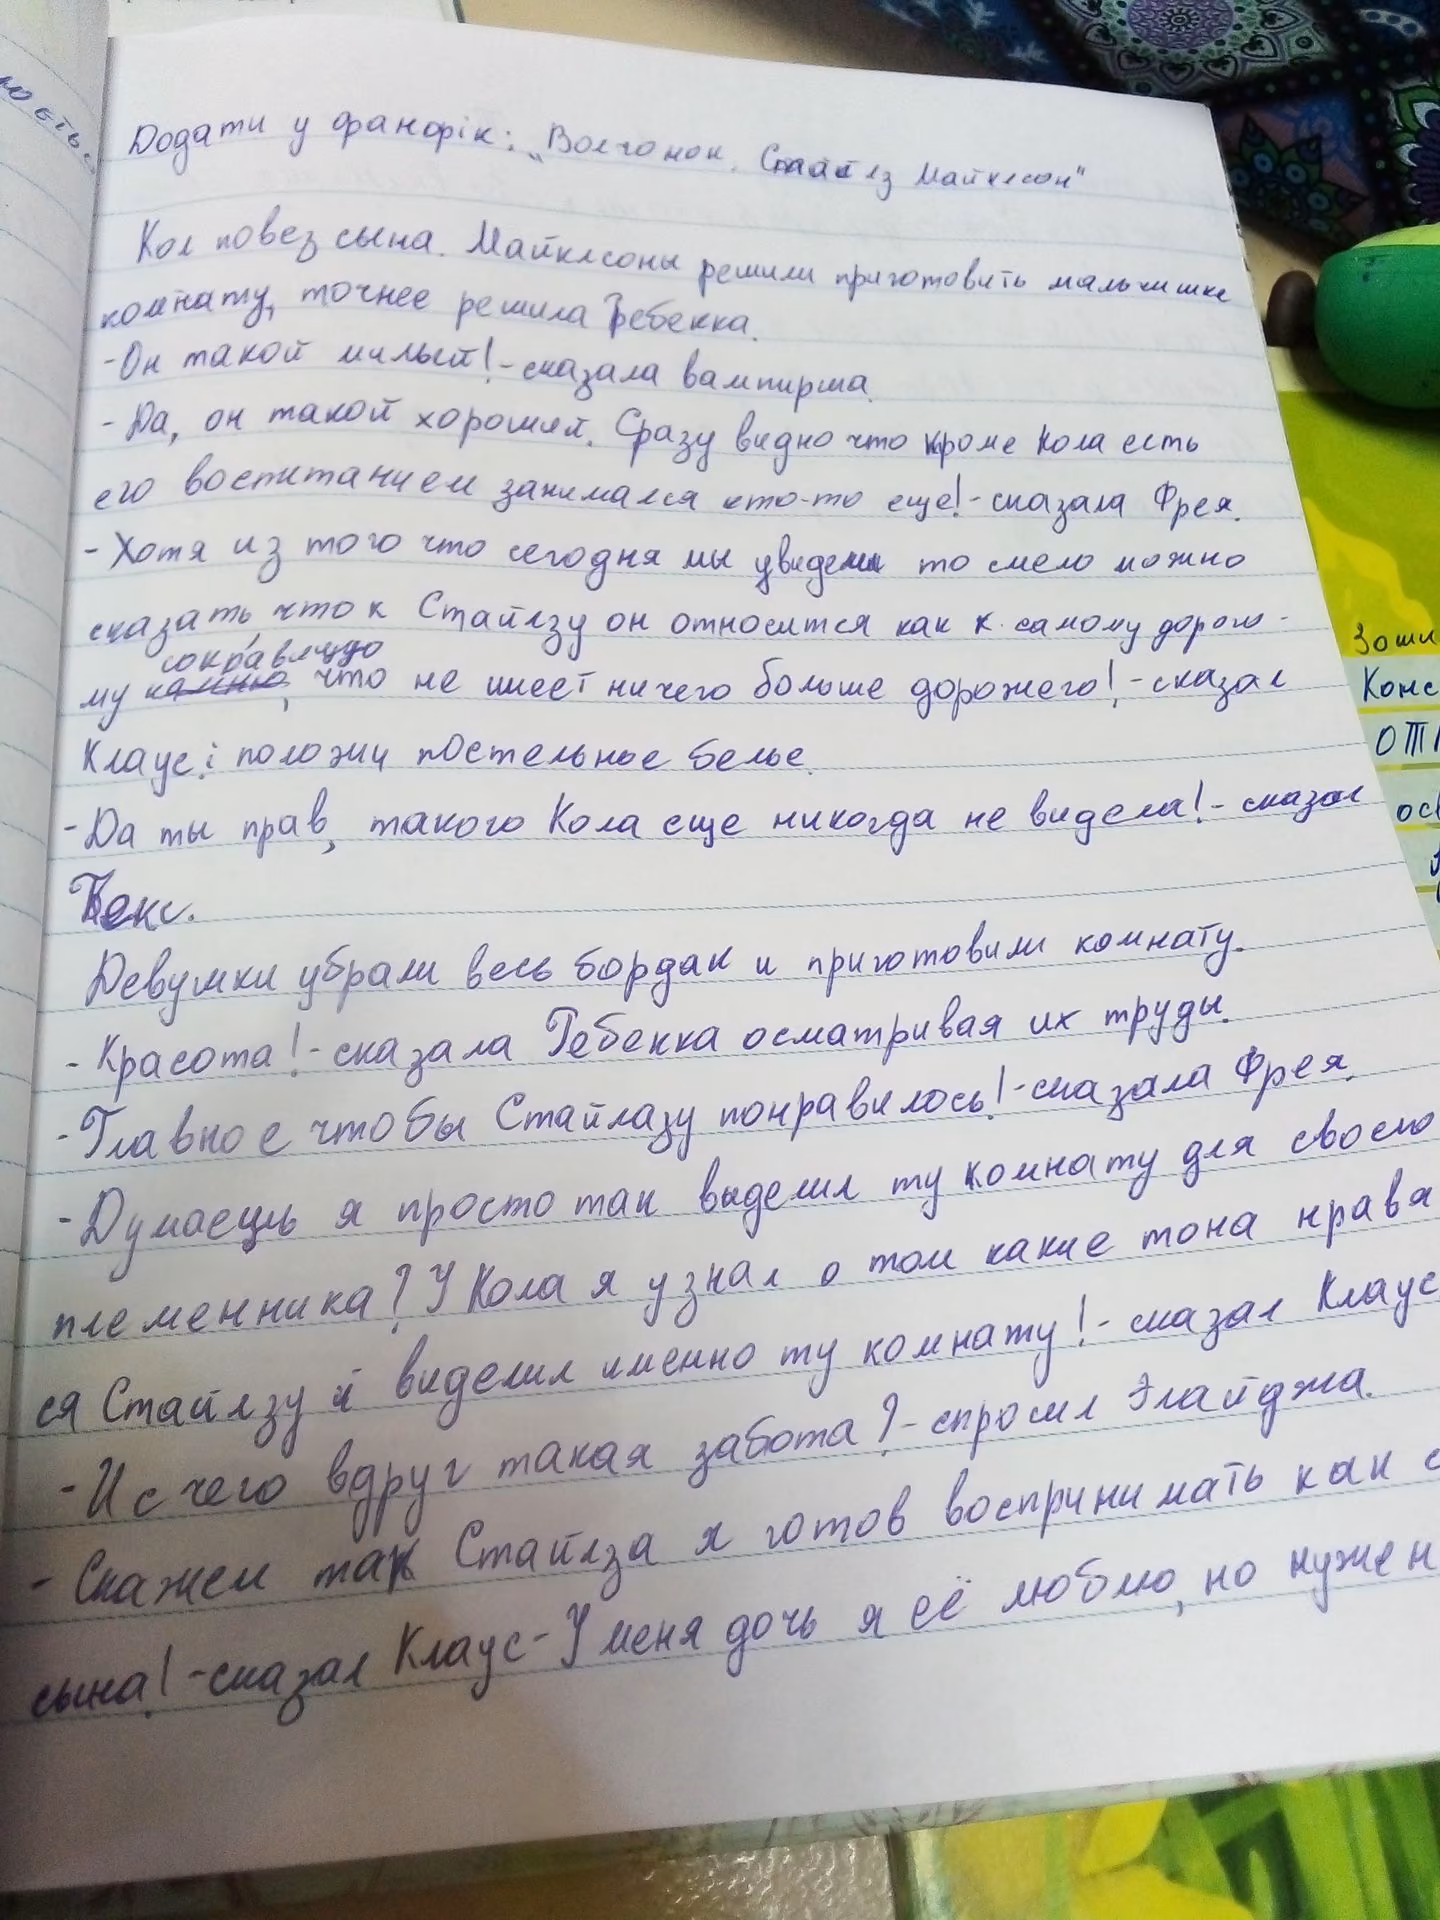 Додати у фанфік: „Волчонок. Стайлз Майклсон"
Кол повез сына. Майклсоны решили приготовить мальчишке
комнату, точнее решила Ребекка.
-Он такой милый!-сказала вампирша.
-Да, он такой хороший. Сразу видно что кроме Кола есть
его воспитанием занимался кто-то еще!-сказала Фрея.
-Хотя из того что сегодня мы увидели то смело можно
сказать что к Стайлзу он относится как к самому дорого-
сокравищдо
му камню, что не имеет ничего больше дорожего!-сказал
Клаус і положи постельное белье.
-Да ты прав, такого Кола еще никогда не видела!-сказал
Бекс.
Девушки убрали весь бордак и приготовили комнату.
-Красота!-сказала Ребекка осматривая их труды.
-Главное чтобы Стайлазу понравилось!-сказала Фрея.
-Думаешь я просто так выделил ту комнату для своего
племенника? У Кола я узнал о том какие тона нрава
ся Стайлзу й виделил именно ту комнату!-сказал Клаус
-И с чего вдруг такая забота?-спросил Элайджа.
-Скажем так Стайлза я готов воспринимать как с
сына!-сказал Клаус-У меня дочь я её люблю, но нужен
Зоши
Конс